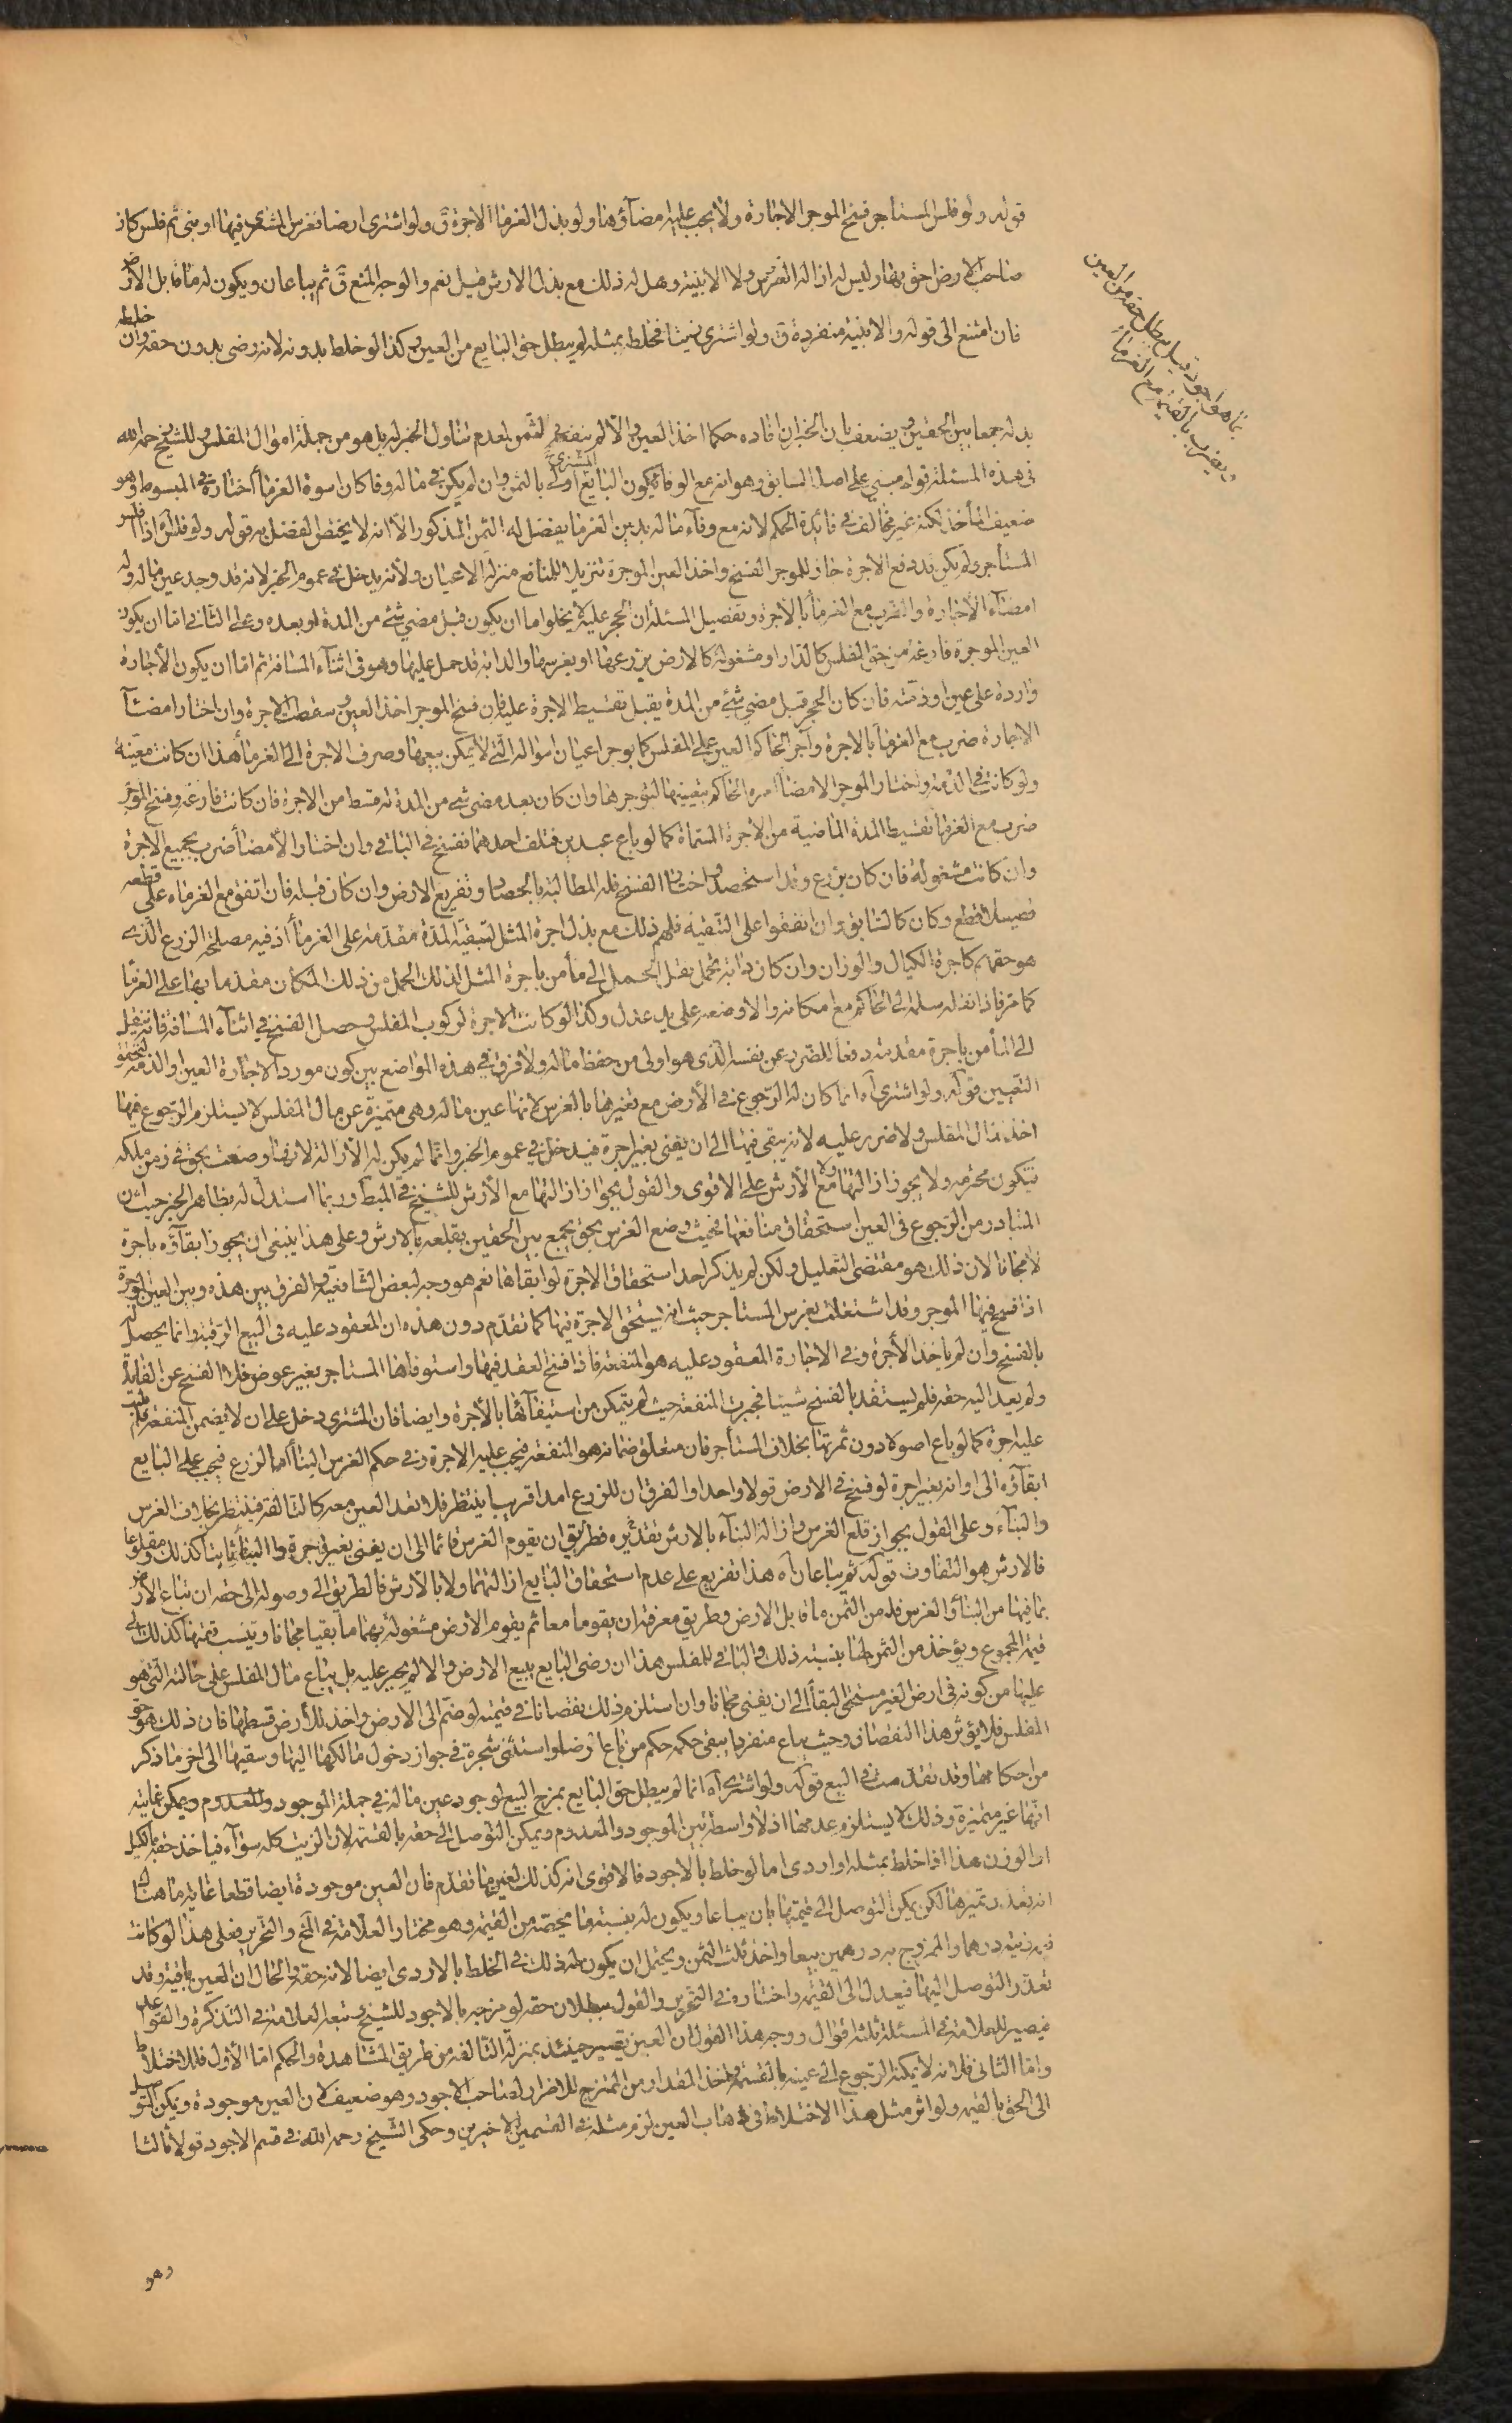 قوله ولو فلس المستاجر فسخ الموجر الاجارة ولا يجب عليه امضاؤها ولو بذل الغرما الاجرة ق ولو اشترى ارضا فغرس المشترى فيها او بنى ثم فلس كان
صاحب الارض احق بها وليس له ازالة الغرس ولا الابنية وهل له ذلك مع بذل الارش قيل نعم والوجه المنع ق ثم يباعان ويكون له ما قابل الارض
فان امتنع الى قوله والابنية منفردة ق ولو اشترى زيتا فخلطه بمثله لم يبطل حق البايع من العين وكذا لو خلط بدونه لانه رضى بدون حقه وان خلطه
بما هو اجود قيل يبطل حقه من العين
ويضرب بالقيمة مع الغرماء
بدله جمعا بين الحقين ويضعف بان الخبر ان افاده حكما اخذ العين والا لم ينفعه في الثمن لعدم تناول الخبر له بل هو من جملة اموال المفلس وللشيخ رحمه الله
في هذه المسئلة قول مبنى على اصله السابق وهو انه مع الوفاء يكون البايع اولى بالثمن وان لم يكن في ماله وفا كان اسوة الغرماء اختاره في المبسوط وهو
ضعيف المأخذ لكنه غير مخالف في فائدة الحكم لانه مع وفاء ماله بدين الغرما يفضل له الثمن المذكور الا انه لا يختص الفضل به قوله ولو فلس اه اذا افلس
المستأجر ولم يكن قد دفع الاجرة جاز للموجر الفسخ واخذ العين الموجرة تنزيلا للمنافع منزلة الاعيان ولانه يدخل في عموم الخبر لانه قد وجد عين ماله وله
امضاء الاجارة والضرب مع الغرماء بالاجرة وتفصيل المسئلة ان الحجر عليه لا يخلو اما ان يكون قبل مضى شئ من المدة او بعده وعلى الثانى اما ان يكون
العين الموجرة فارغة من حق المفلس كالدار او مشغولة كالارض يزرعها او يغرسها والدابة قد حمل عليها وهو في اثناء المسافة ثم اما ان يكون الاجارة
واردة على عين او ذمة فان كان الحجر قبل مضى شئ من المدة يقبل تقسيط الاجرة عليه فان فسخ الموجر اخذ العين وسقطت الاجرة وان اختار امضاء
الاجارة ضرب مع الغرماء بالاجرة وآجر الحاكم العين على المفلس كما يوجر اعيان امواله التي لا يمكن بيعها وصرف الاجرة الى الغرماء هذا ان كانت معينة
ولو كانت في الذمة واختار الموجر الامضاء امره الحاكم بتعيينها لتوجرها وان كان بعد مضى شئ من المدة له قسط من الاجرة فان كانت فارغة وفسخ الموجر
ضرب مع الغرماء بقسط المدة الماضية من الاجرة المسماة كما لو باع عبدين فتلف احدهما ففسخ في الباقى وان اختار الامضاء ضرب بجميع الاجرة
وان كانت مشغولة فان كان بزرع وقد استحصد واختار الفسخ فله المطالبة بالحصاد وتفريغ الارض وان كان قبله فان اتفق مع الغرماء على قطعه
فصيلا قطع وكان كالسابق وان اتفقوا على التبقية فلهم ذلك مع بذل اجرة المثل لبقية المدة مقدمة على الغرماء اذ فيه مصلحة الزرع الذى
هو حقهم كاجرة الكيال والوزان وان كان دابة تحمل نقل الحمل الى مأمن باجرة المثل لذلك الحمل من ذلك المكان مقدما بها على الغرما
كما مر فاذا نقله سلمه الى الحاكم مع امكانه والا وضعه على يد عدل وكذا لو كانت الاجرة لركوب المفلس وحصل الفسخ في اثناء المسافة فانه ينقله
الى المأمن باجرة مقدمة دفعا للضرر عن نفسه الذى هو اولى من حفظ ماله ولا فرق في هذه المواضع بين كون مورد الاجارة العين او الذمة لتحقق
التعيين قوله ولو اشترى اه انما كان له الرجوع في الارض مع تغيرها بالغرس لانها عين ماله وهى متميزة عن مال المفلس لا يستلزم الرجوع فيها
اخذ مال المفلس ولا ضرر عليه لانه يبقى فيها الى ان يفنى بغير اجرة فيدخل في عموم الخبر وانما لم يكن له الازالة لانها وضعت بحق في زمن ملكه
فتكون محترمة ولا يجوز ازالتها ولا مع الارش على الاقوى والقول بجواز ازالتها مع الارش للشيخ في المبسوط وربما استدل له بظاهر الخبر حيث ان
المتبادر من الرجوع في العين استحقاق منافعها فحيث وضع الغرس بحق يجمع بين الحقين بقلعه بالارش وعلى هذا ينبغى ان يجوز ابقاؤه باجرة
لا مجانا لان ذلك هو مقتضى التعليل ولكن لم يذكر احد استحقاق الاجرة لو ابقاها نعم هو وجه لبعض الشافعية والفرق بين هذه وبين العين الموجرة
اذا فسخ فيها الموجر وقد اشتغلت بغرس المستاجر حيث انه يستحق الاجرة فيها كما تقدم دون هذه ان المعقود عليه في البيع الرقبة وانما يحصل له
بالفسخ وان لم ياخذ الاجرة وفي الاجارة المعقود عليه هو المنفعة فاذا فسخ العقد فيها واستوفاها المستاجر بغير عوض خلا الفسخ عن الفايدة
ولم يعد اليه حقه فلم يستفد بالفسخ شيئا فجبرت المنفعة حيث لم يتمكن من استيفائها بالاجرة وايضا فان المشترى دخل على ان لا يضمن المنفعة فلم يجب
عليه اجرة كما لو باع اصولا دون ثمرتها بخلاف المستأجر فان متعلق ضمانه هو المنفعة فيجب عليه الاجرة وفي حكم الغرس البناء اما الزرع فيجب على البايع
ابقاؤه الى اوانه بغير اجرة لو فسخ في الارض قولا واحدا والفرق ان للزرع امدا قريبا ينتظر فلا تعد العين معه كالتالفة فينتظر بخلاف الغرس
والبناء وعلى القول بجواز قلع الغرس وازالة البناء بالارش تقديره فطريق ان يقوم الغرس قائما الى ان يفنى بغير اجرة والبناء ثابتا كذلك ومقلوعا
فالارش هو التفاوت قوله ثم يباعان اه هذا تفريع على عدم استحقاق البايع ازالتهما ولا بالارش فالطريق الى وصوله الى حقه ان تباع الارض
بما فيها من البناء والغرس فله من الثمن ما قابل الارض وطريق معرفته ان يقوما معا ثم يقوم الارض مشغولة بهما ما بقيا مجانا وتنسب قيمتها كذلك الى
قيمة المجموع ويؤخذ من الثمن لها بنسبة ذلك والباقى للمفلس هذا ان رضى البايع ببيع الارض والا لم يجبر عليه بل يباع مال المفلس على حالته التى هو
عليها من كونه في ارض الغير مستحق البقاء الى ان يفنى مجانا وان استلزم ذلك نقصانا في قيمته لو ضم الى الارض واخذ للارض قسطها فان ذلك هو حق
المفلس فلا يؤثر هذا النقصان وحيث يباع منفردا يبقى حكمه حكم من باع ارضا واستثنى شجرة في جواز دخول مالكها اليها وسقيها الى اخر ما ذكر
من احكامها وقد تقدمت في البيع قوله ولو اشترى اه انما لم يبطل حق البايع بمزج المبيع لوجود عين ماله في جملة الموجود والمعدوم ويمكن غايته
انها غير متميزة وذلك لا يستلزم عدمها اذ لا واسطة بين الموجود والمعدوم ويمكن التوصل الى حقه بالقسمة لان الزيت كله سواء فياخذ حقه بالكيل
او الوزن هذا اذا خلط بمثله او اردى اما لو خلط بالاجود فالاقوى انه كذلك لعين ما تقدم فان العين موجودة ايضا قطعا غاية ما هناك
انه تعذر تميزها لكن يمكن التوصل الى قيمتها بان يباعا ويكون له بنسبة ما يخصه من القيمة وهو مختار العلامة في المخ والتحرير فعلى هذا لو كانت
قيمة زيته درهما والممزوج به درهمين بيعا واخذ ثلث الثمن ويحتمل ان يكون له ذلك في الخلط بالاردى ايضا لانه حقه والحال ان العين باقية وقد
تعذر التوصل اليها فيعدل الى القيمة واختاره في التحرير والقول ببطلان حقه لو مزجه بالاجود للشيخ وتبعه العلامة في التذكرة والقواعد
فيصير للعلامة في المسئلة ثلثة اقوال ووجه هذا القول ان العين تصير حينئذ بمنزلة التالفة من طريق المشاهدة والحكم اما الاول فللاختلاط
واما الثانى فلانه لا يمكنه الرجوع الى عينه بالقسمة واخذ المقدار من الممتزج للاضرار بصاحب الاجود وهو ضعيف لان العين موجودة ويمكن التوصل
الى الحق بالقيمة ولو اثر مثل هذا الاختلاط في ذهاب العين لزم مثله في القسمين الاخيرين وحكى الشيخ رحمه الله في قسم الاجود قولا ثالثا
وهو